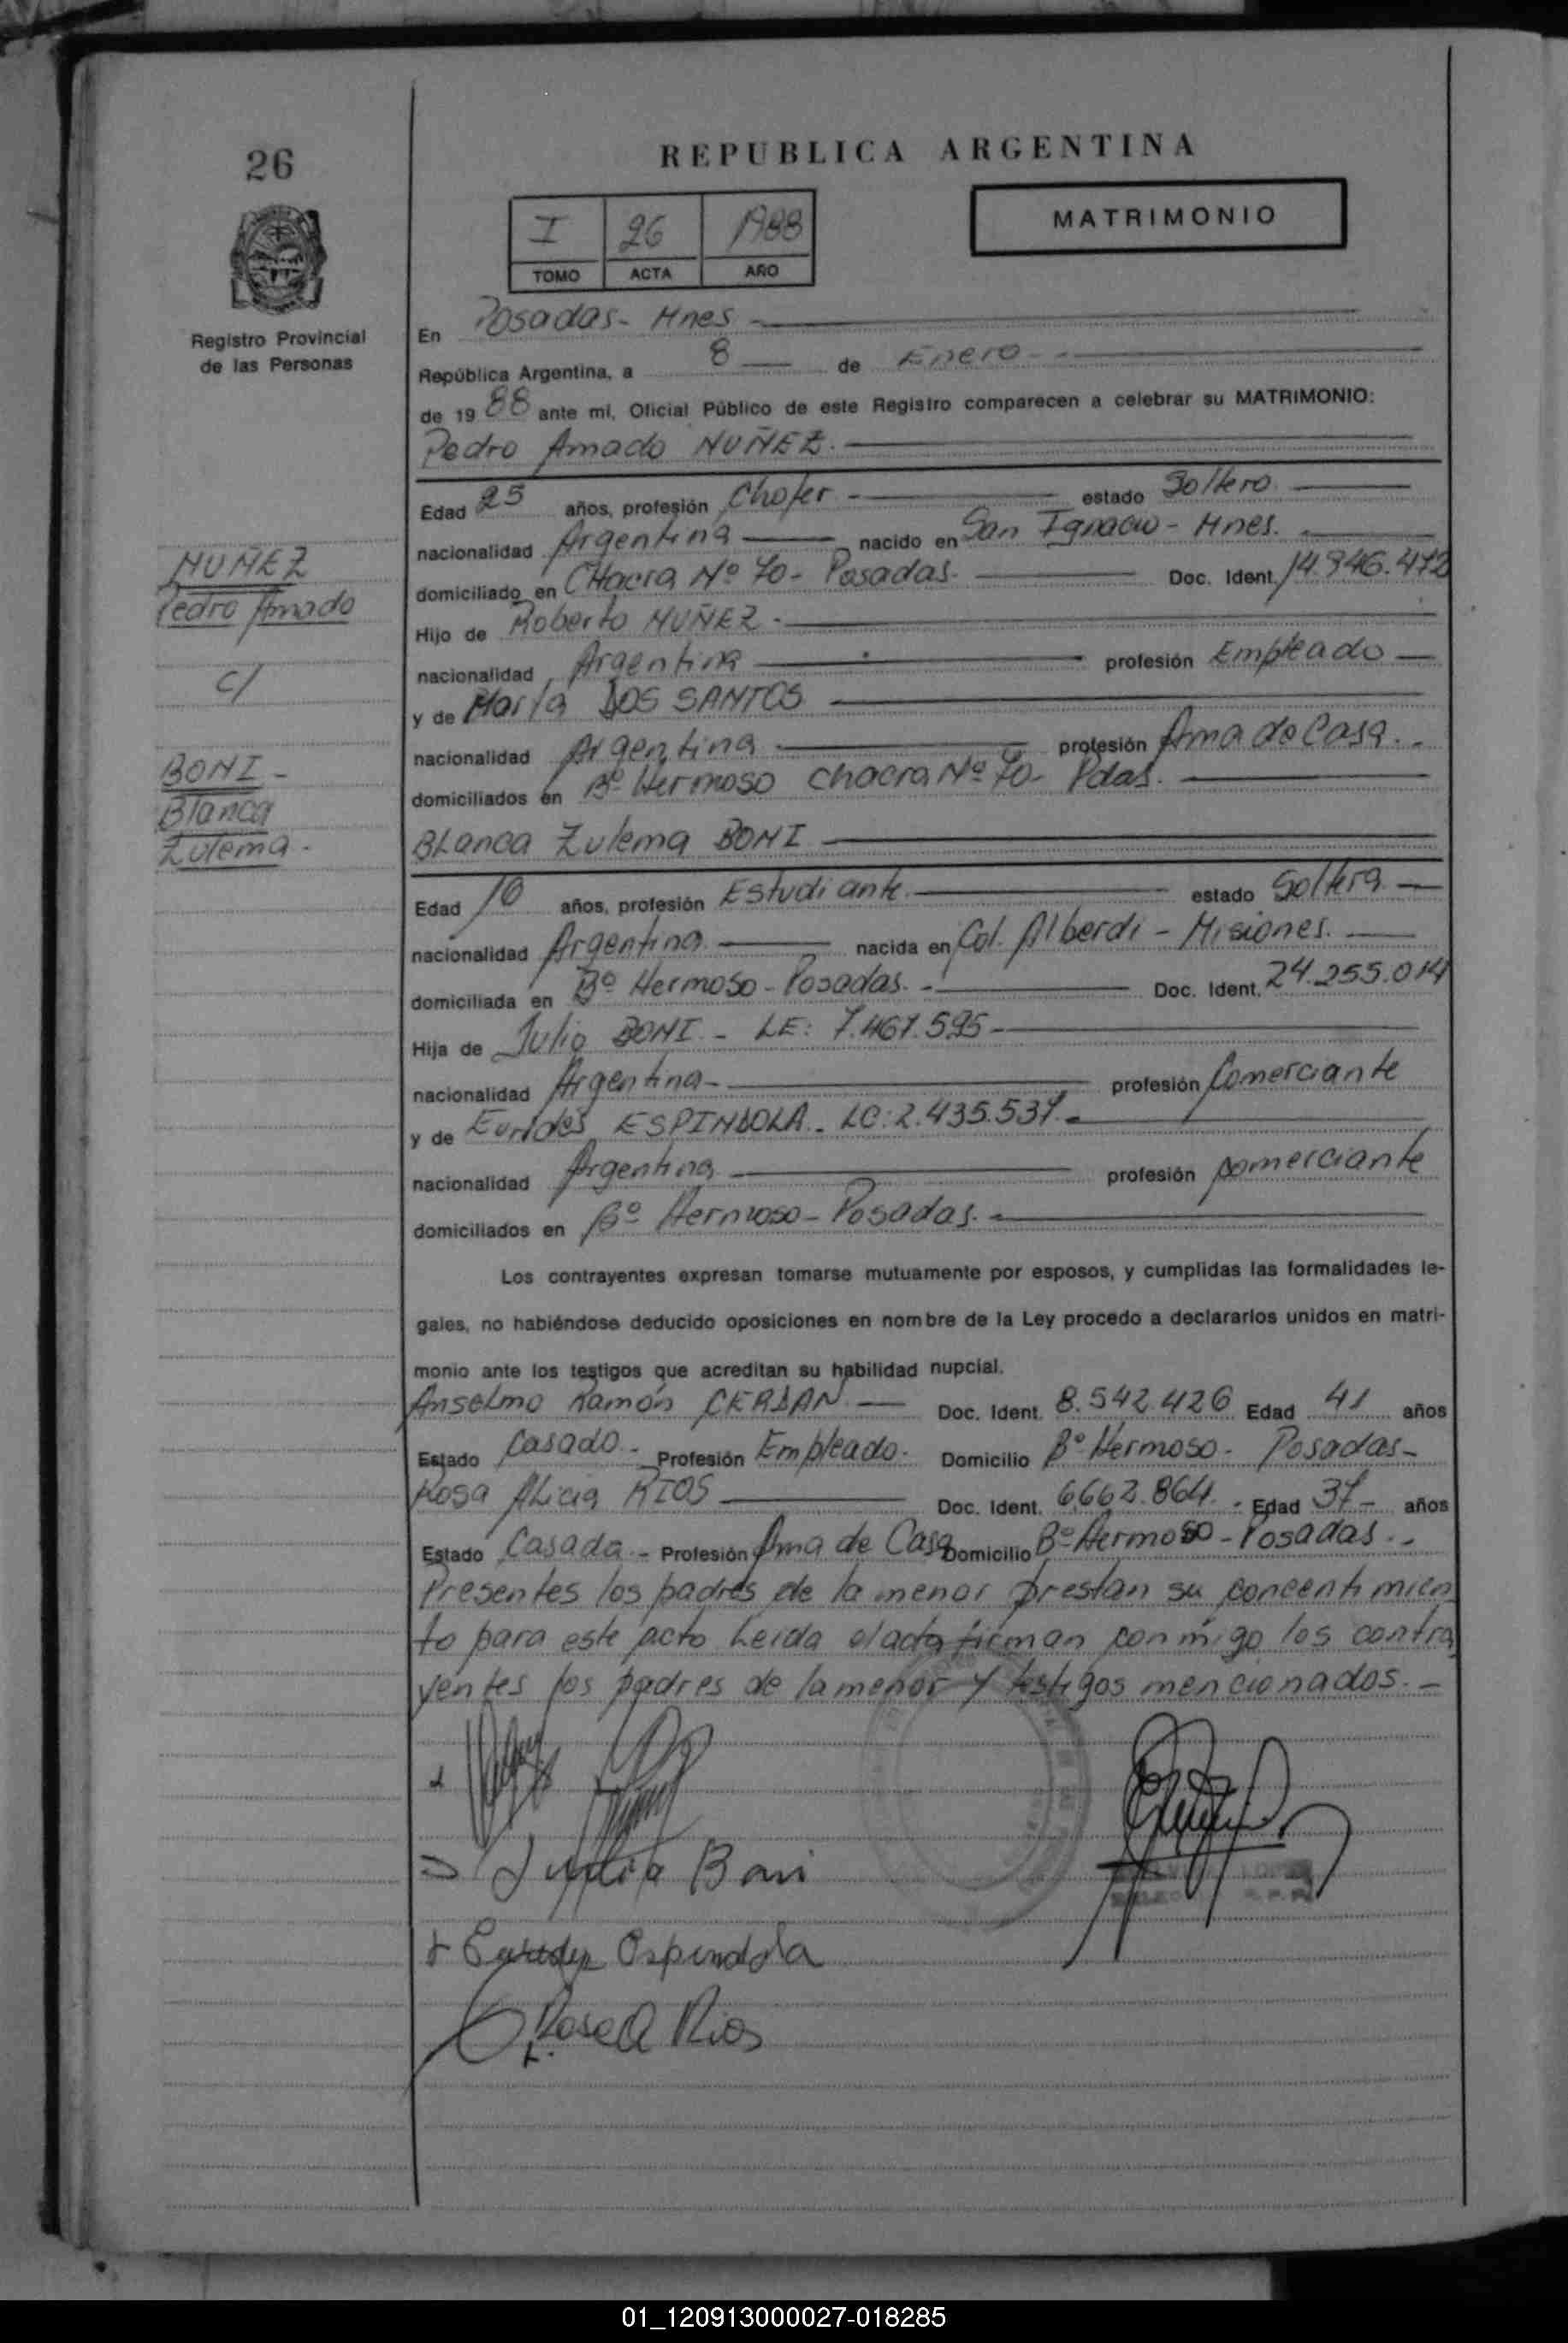 26
REPUBLICA ARGENTINA
I 26 1988
TOMO ACTA AÑO
MATRIMONIO
Registro Provincial
de las Personas
En Posadas - Mnes -
República Argentina, a 8 de Enero -
de 1988 ante mí, Oficial Público de este Registro comparecen a celebrar su MATRIMONIO:
Pedro Amado NUÑEZ.
Edad 25 años, profesión Chofer - estado Soltero
nacionalidad Argentina nacido en San Ignacio - Mnes.
domiciliado en CHacra Nº 70 - Posadas. Doc. Ident. 14.946.472
Hijo de Roberto NUÑEZ -
nacionalidad Argentina profesión Empleado
y de María DOS SANTOS
nacionalidad Argentina profesión Ama de Casa.
domiciliados en Bº Hermoso chacra Nº 70 - Pdas.
NUÑEZ
Pedro Amado
c/
BONI -
Blanca
Zulema -
BLanca Zulema BONI
Edad años, profesión Estudiante estado Soltera
nacionalidad Argentina nacida en Col. Alberdi - Misiones.
domiciliada en Bº Hermoso - Posadas. - Doc. Ident. 24.255.014
Hija de Julio BONI - LE: 7.467.595 -
nacionalidad Argentina - profesión Comerciante
y de ESPINDOLA - LC: 2.435.537 -
nacionalidad Argentina profesión comerciante
domiciliados en Bº Hermoso - Posadas. -
Los contrayentes expresan tomarse mutuamente por esposos, y cumplidas las formalidades le-
gales, no habiéndose deducido oposiciones en nombre de la Ley procedo a declararlos unidos en matri-
monio ante los testigos que acreditan su habilidad nupcial.
Anselmo Ramón CERDAN - Doc. Ident. 8.542.426 Edad 41 años
Estado Casado - Profesión Empleado - Domicilio Bº Hermoso - Posadas -
Rosa ALicia RIOS Doc. Ident. 6.662.864 - Edad 37 - años
Estado Casada - Profesión Ama de Casa Domicilio Bº Hermoso - Posadas. -
Presentes los padres de la menor prestan su concentimien
to para este acto Leida el acta firman conmigo los contra
yentes los padres de la menor y testigos mencionados. -
Boni
Espindola
Rosa A Rios
01_120913000027-018285